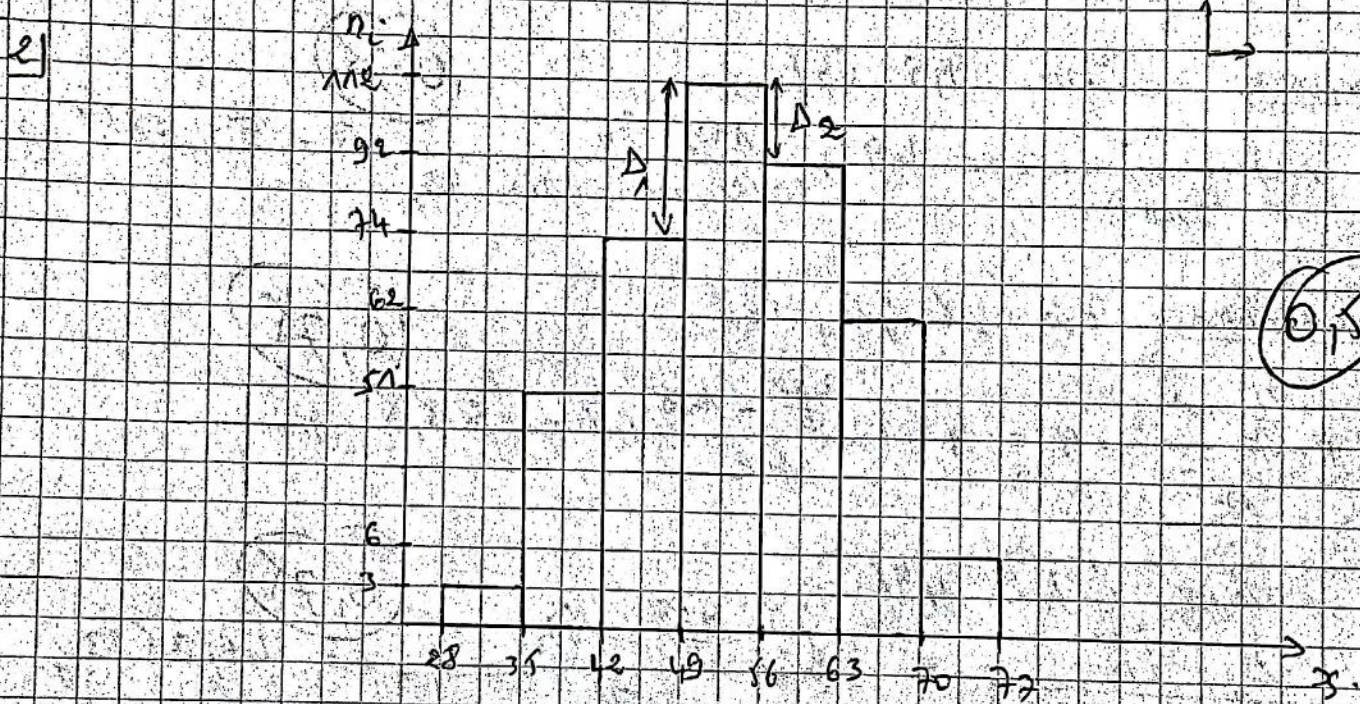 2]
nᵢ
112
92
74
62
51
6
3
Δ₁
Δ₂
0,5
28 35 42 49 56 63 70 77